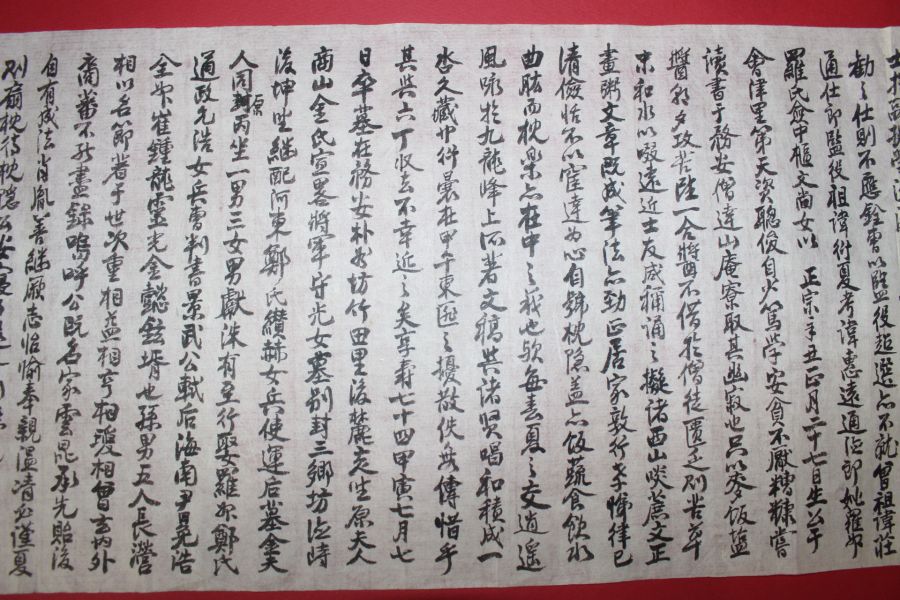 勸之仕則不應銓曹以監役超選亦不就曾祖諱莊
通仕郎監役祖諱衍夏考諱憲遠通德郎妣羅州
羅氏僉中樞文尚女以 正宗辛丑正月二十七日生公于
會津里第天資聰俊自少篤學安貧不厭糟糠嘗
讀書于務安僧達山庵寮取其幽寂也只以麥飯塩
醬朝夕攻苦陸一合將不借於僧徒匱乏則苦草
末和水以啜遠近士友咸稱誦之擬諸西山啖薺文正
畫粥文章旣成筆法亦勁正居家敦行孝悌律己
清儉恬不以窮達為心自號枕隐盖亦飯蔬食飮水
曲肱而枕樂亦在中之義也欤每春夏之交逍遙
風咏於九龍峰上所著文稿與諸贤唱和積成一
呇久藏巾件曩在甲午東匪之擾散佚無傳惜乎
其與六丁收去不幸近之矣享壽七十四甲寅七月七
日卒墓在務安朴谷坊竹田里後麓亥坐原夫人
商山金氏宣畧將軍守光女墓别封三鄉坊德時
後坤坐継配河東鄭氏纘赫女兵使運后墓金夫
人同原丙坐一男三女男獻洙有至行娶羅州鄭氏
通政元浩女兵曹判書景武公軾后海南尹晃浩
全州崔鍾龍靈光金懿鉉壻也孫男五人長瀅
相以名節著于世次重相益相亨相瓊相曾玄內外
裔蕃不能盡錄嗚呼公旣名家雲昆承先貽後
自有成法肖胤善継厥志怡愉奉親温凊至謹夏
則扇枕